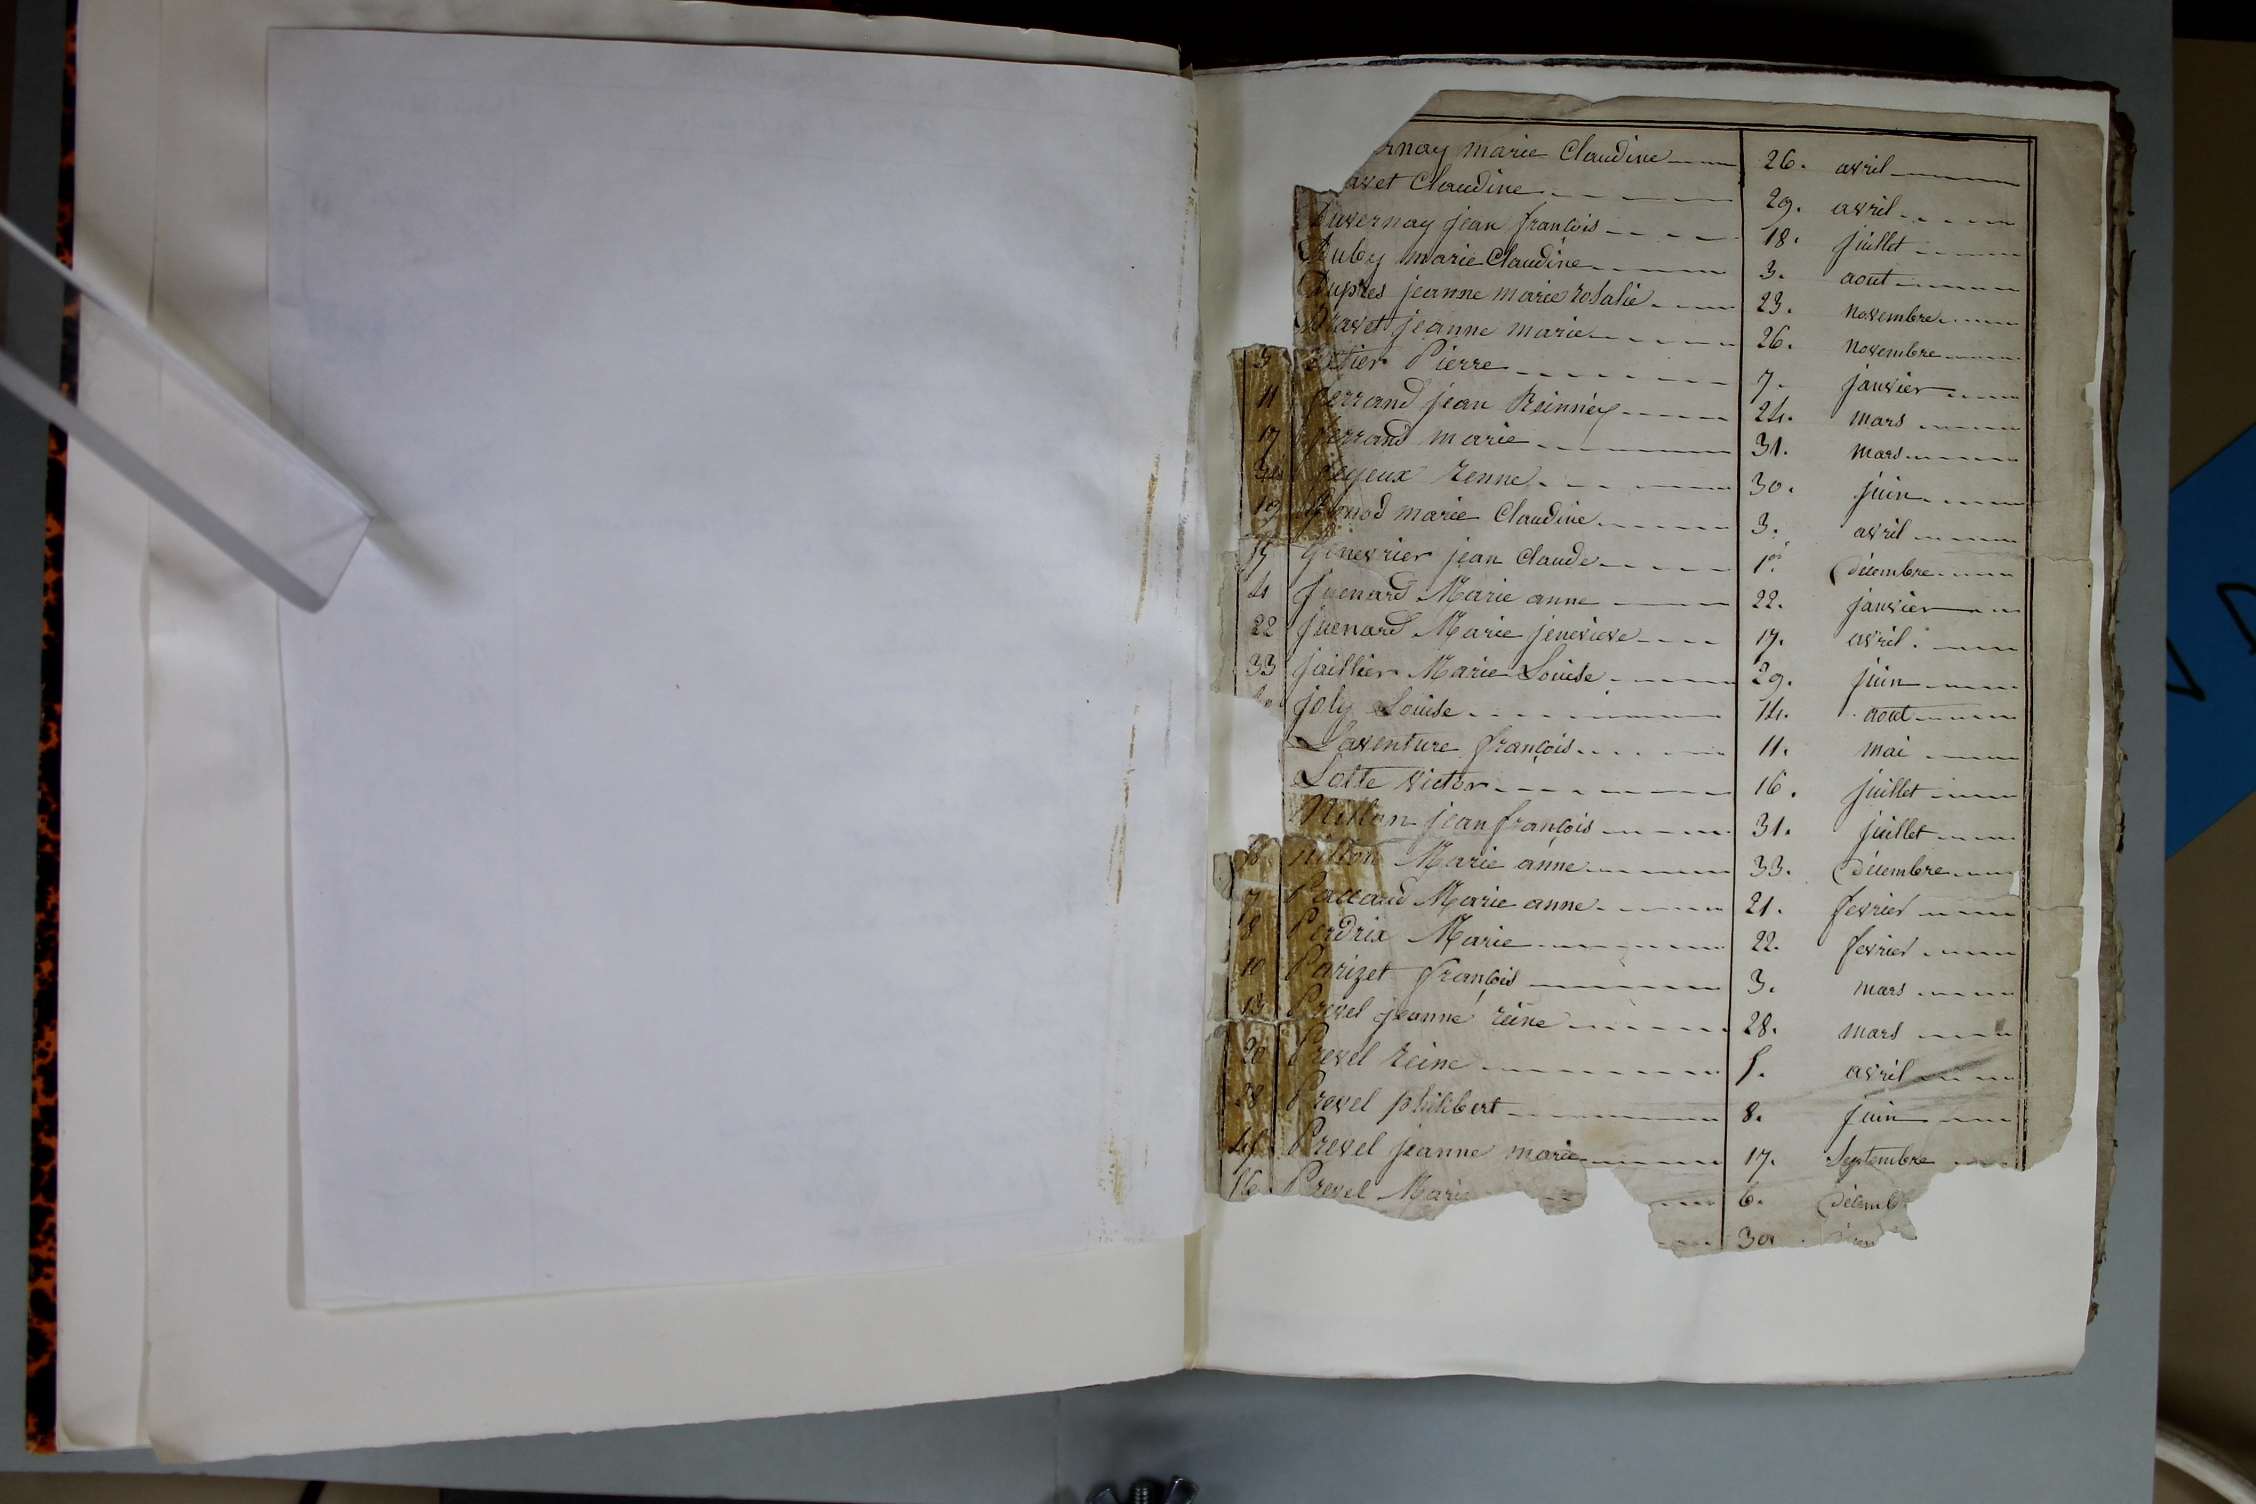 rnay marie Claudine 26. avril
avet Claudine 29. avril
Duvernay jean françois 18. juillet
Ruby marie Claudine 3. aout
Dupres jeanne marie rosalie 23. novembre
Dravet jeanne marie 26. novembre
3 Pierre 7. janvier
11 ferrand jean 24. mars
17 ferrand marie 31. mars
feyeux renne 30. juin
19 Gonod marie Claudine 3. avril
Genevrier jean Claude 1er Décembre
4 juenard Marie anne 22. janvier
22 juenard Marie jenevieve 17. avril
33 jaillier Marie Louise 29. juin
joly Louise 14. aout
Laventure françois 11. mai
Lotte victor 16. juillet
Nillon jean françois 31. juillet
nillon Marie anne 33. Décembre
7 Paccaud Marie anne 21. fevrier
8 Perdrix Marie 22. fevrier
10 Parizet françois 3. mars
13 Prevel jeanne reine 28. mars
20 Prevel reine 5. avril
28 Prevel philibert 8. juin
Prevel jeanne marie 17. Septembre
Prevel Marie 6. Décemb
30